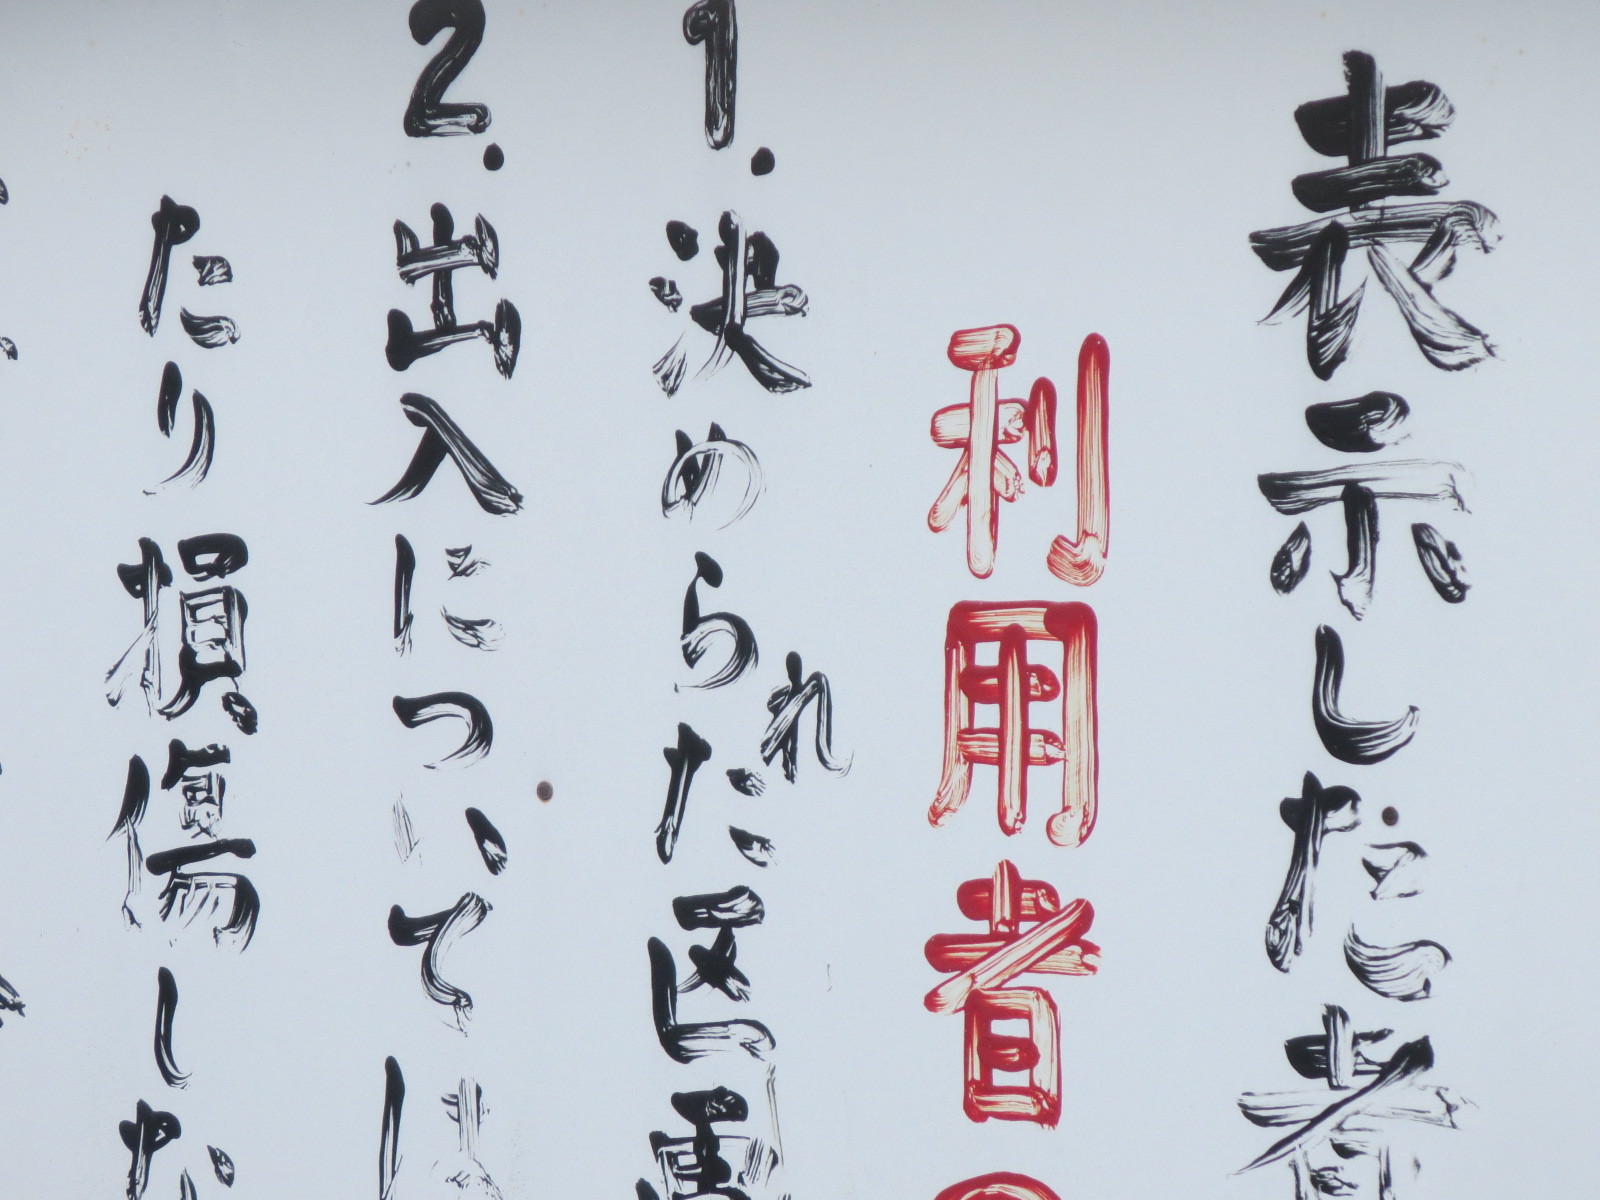 表示した者
利用者の
1.決められた区画
2.出入については
たり損傷した